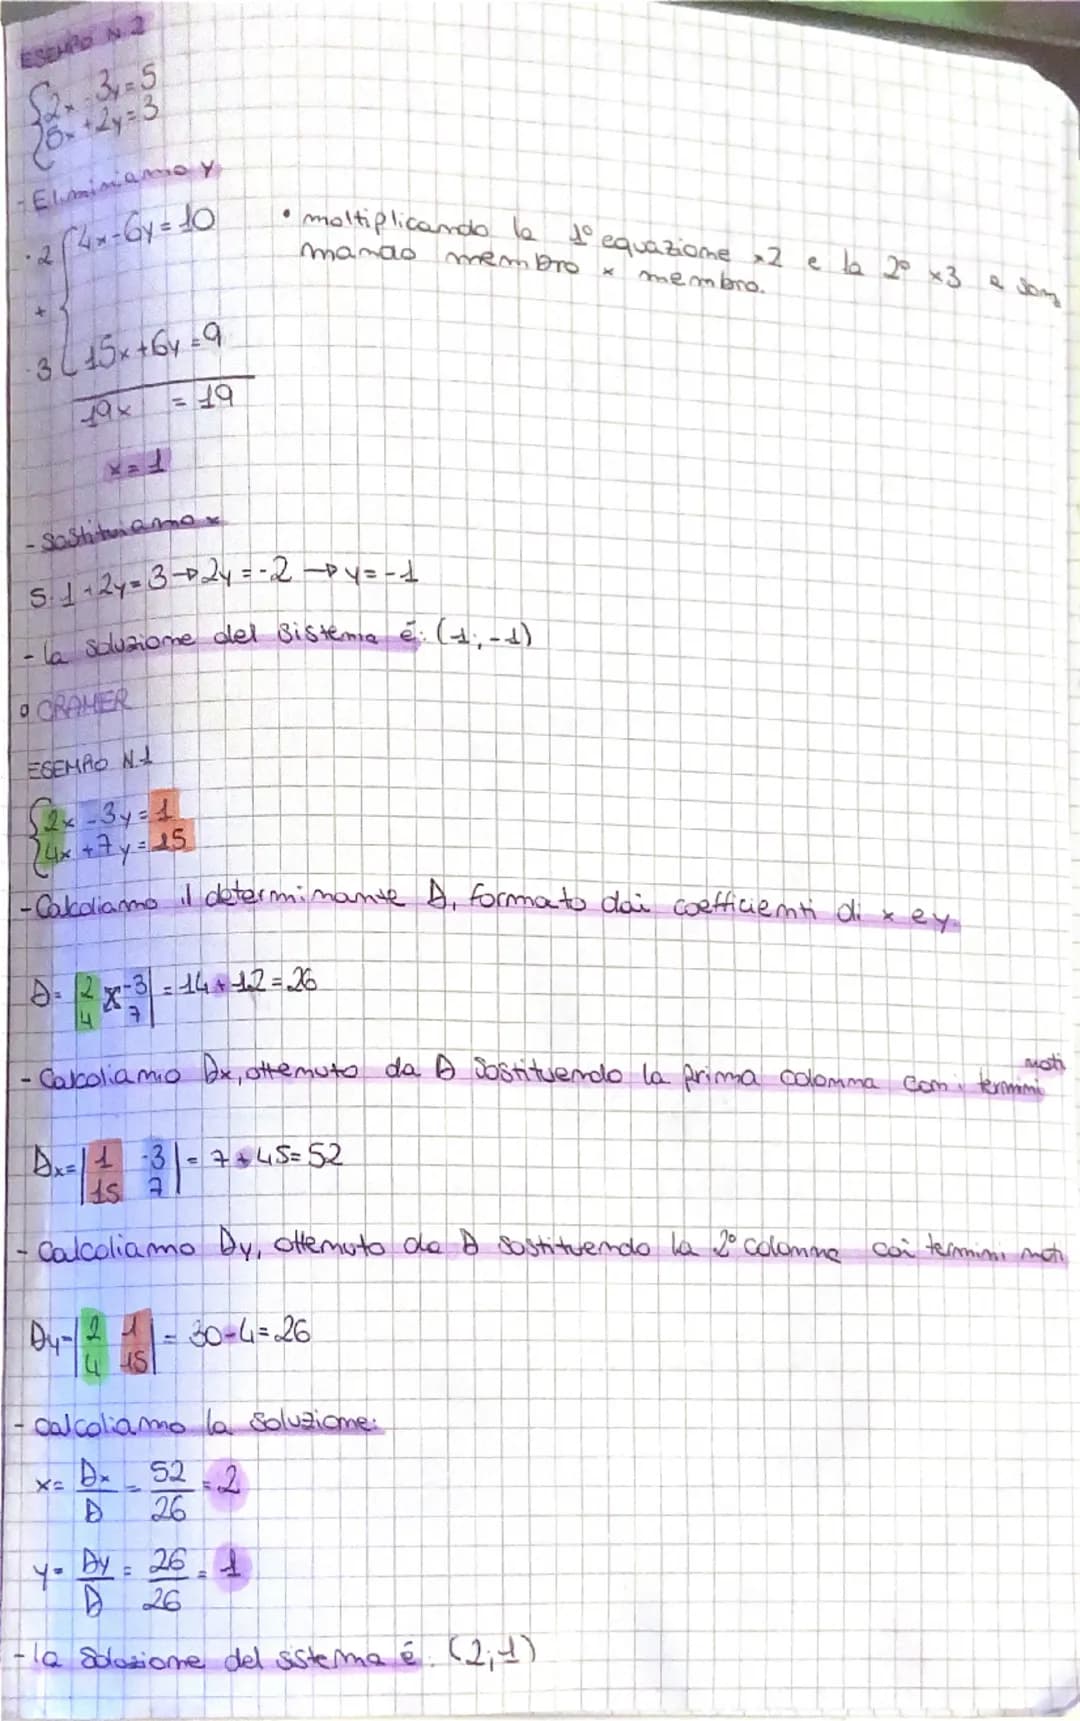 ESEMPIO N.2
{2x-3y=5
{5x+2y=3
- Eliminiamo y
·2 {4x-6y=10
• moltiplicando la 1° equazione x2 e la 2° x3 e som
mando membro x membro.
+
·3 {15x+6y=9
19x = 19
x=1
- Sostituiamo x
5·1+2y=3→2y=-2→y=-1
- la soluzione del sistema é: (1;-1)
• CRAMER
ESEMPIO N.1
{2x-3y=1
{4x+7y=15
- Calcoliamo il determinante D, formato dai coefficienti di x e y.
D= |2 -3| = 14+12=26
|4 7|
- Calcoliamo Dx, ottenuto da D sostituendo la prima colonna con i termini noti
Dx= |1 -3| = 7+45=52
|15 7|
- Calcoliamo Dy, ottenuto da D sostituendo la 2° colonna coi termini noti
Dy= |2 1| = 30-4=26
|4 15|
- calcoliamo la soluzione:
x= Dx/D = 52/26 = 2
y= Dy/D = 26/26 = 1
- la soluzione del sistema é: (2;1)